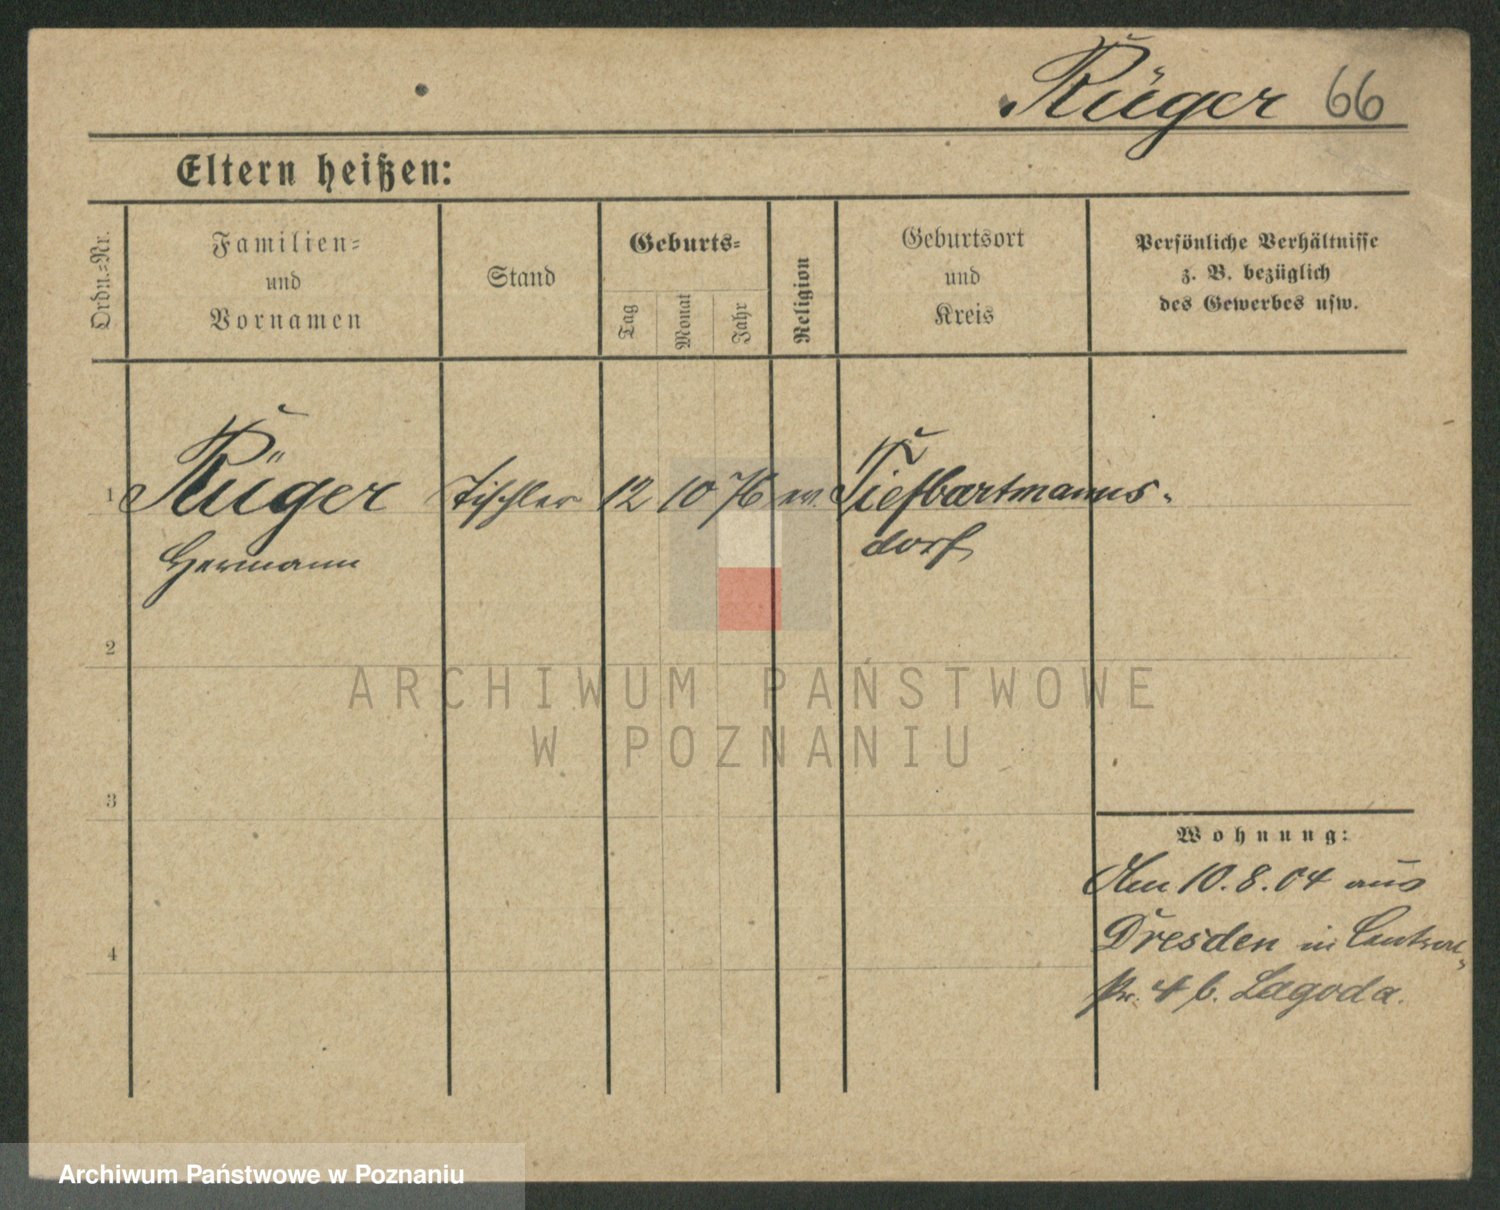 Rüger 66
Eltern heißen:
Ordn.=Nr.
Familien=
und
Vornamen
Stand
Geburts=
Tag
Monat
Jahr
Religion
Geburtsort
und
Kreis
Persönliche Verhältnisse
z. B. bezüglich
des Gewerbes usw.
1 Rüger Tischler 12 10 76 ev. Tiefbartmanns-
Hermann dorf
2
ARCHIWUM PAŃSTWOWE
W POZNANIU
3
Wohnung:
Am 10.8.04 aus
4 Dresden in Central-
str. 4 b. Lagoda.
Archiwum Państwowe w Poznaniu